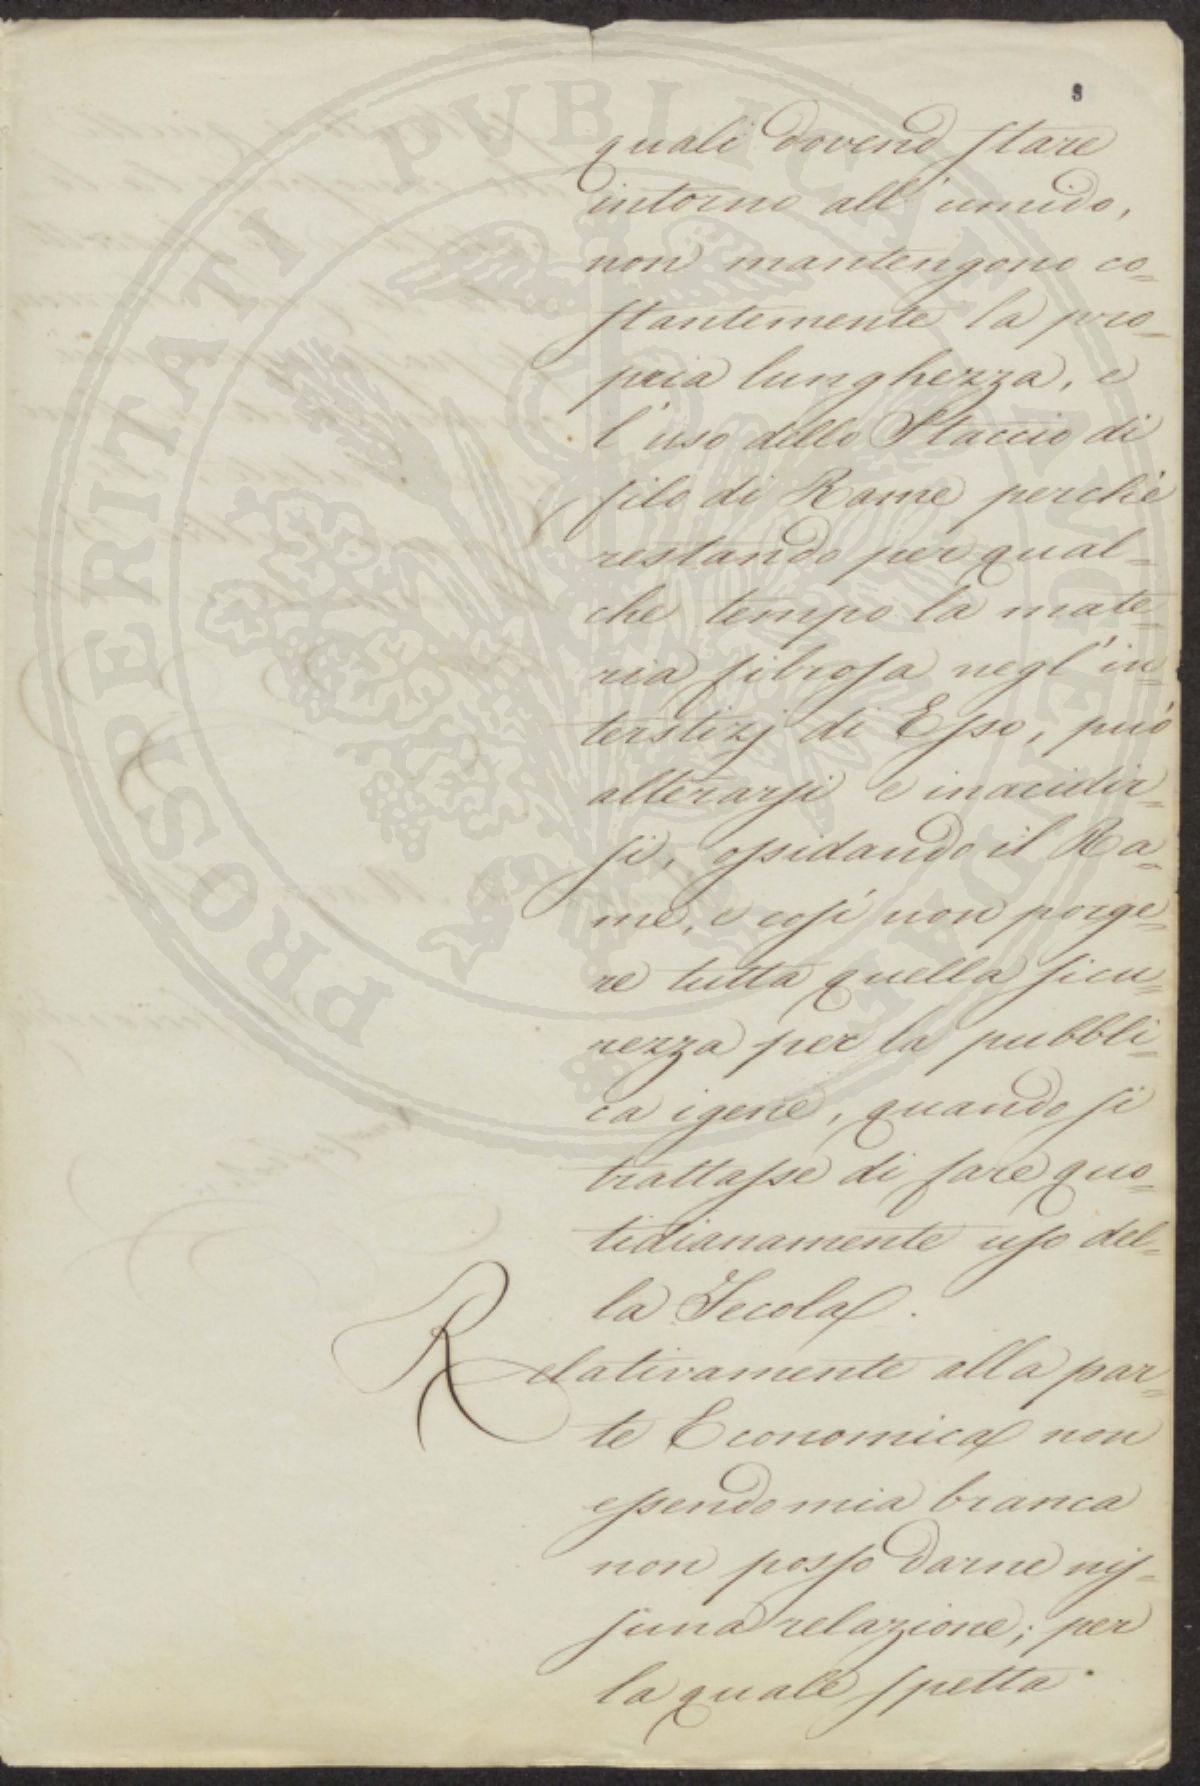 8
quali dovend stare
intorno all'umido,
non mantengono co-
stantemente la pro-
pria lunghezza, e
l'uso dello Staccio di
filo di Rame perchè
restando per qual-
che tempo la mate-
ria fibrosa negl'in-
terstizj di Esso, può
alterarsi e inacidir-
si, ossidando il Ra-
me, e così non porge-
re tutta quella sicu-
rezza per la pubbli-
ca igene, quando si
trattasse di fare quo-
tidianamente uso del-
la Fecola.
Relativamente alla par-
te Economica non
essendo mia branca
non posso darne nis-
suna relazione; per
la quale spetta
PROSPERITATI PUBLICAE AUGENDAE